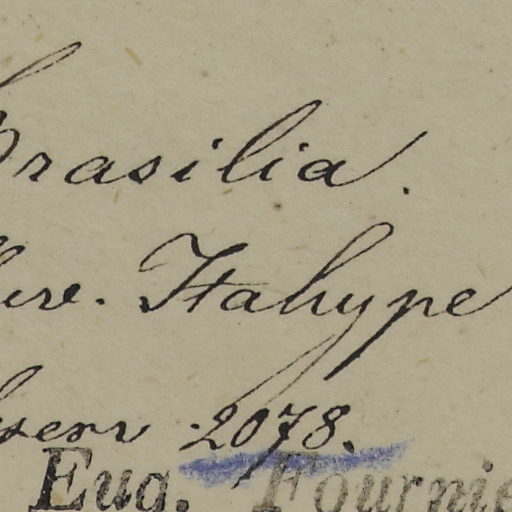 Brasilia.
Itahype
2078.
Eug. Fournie